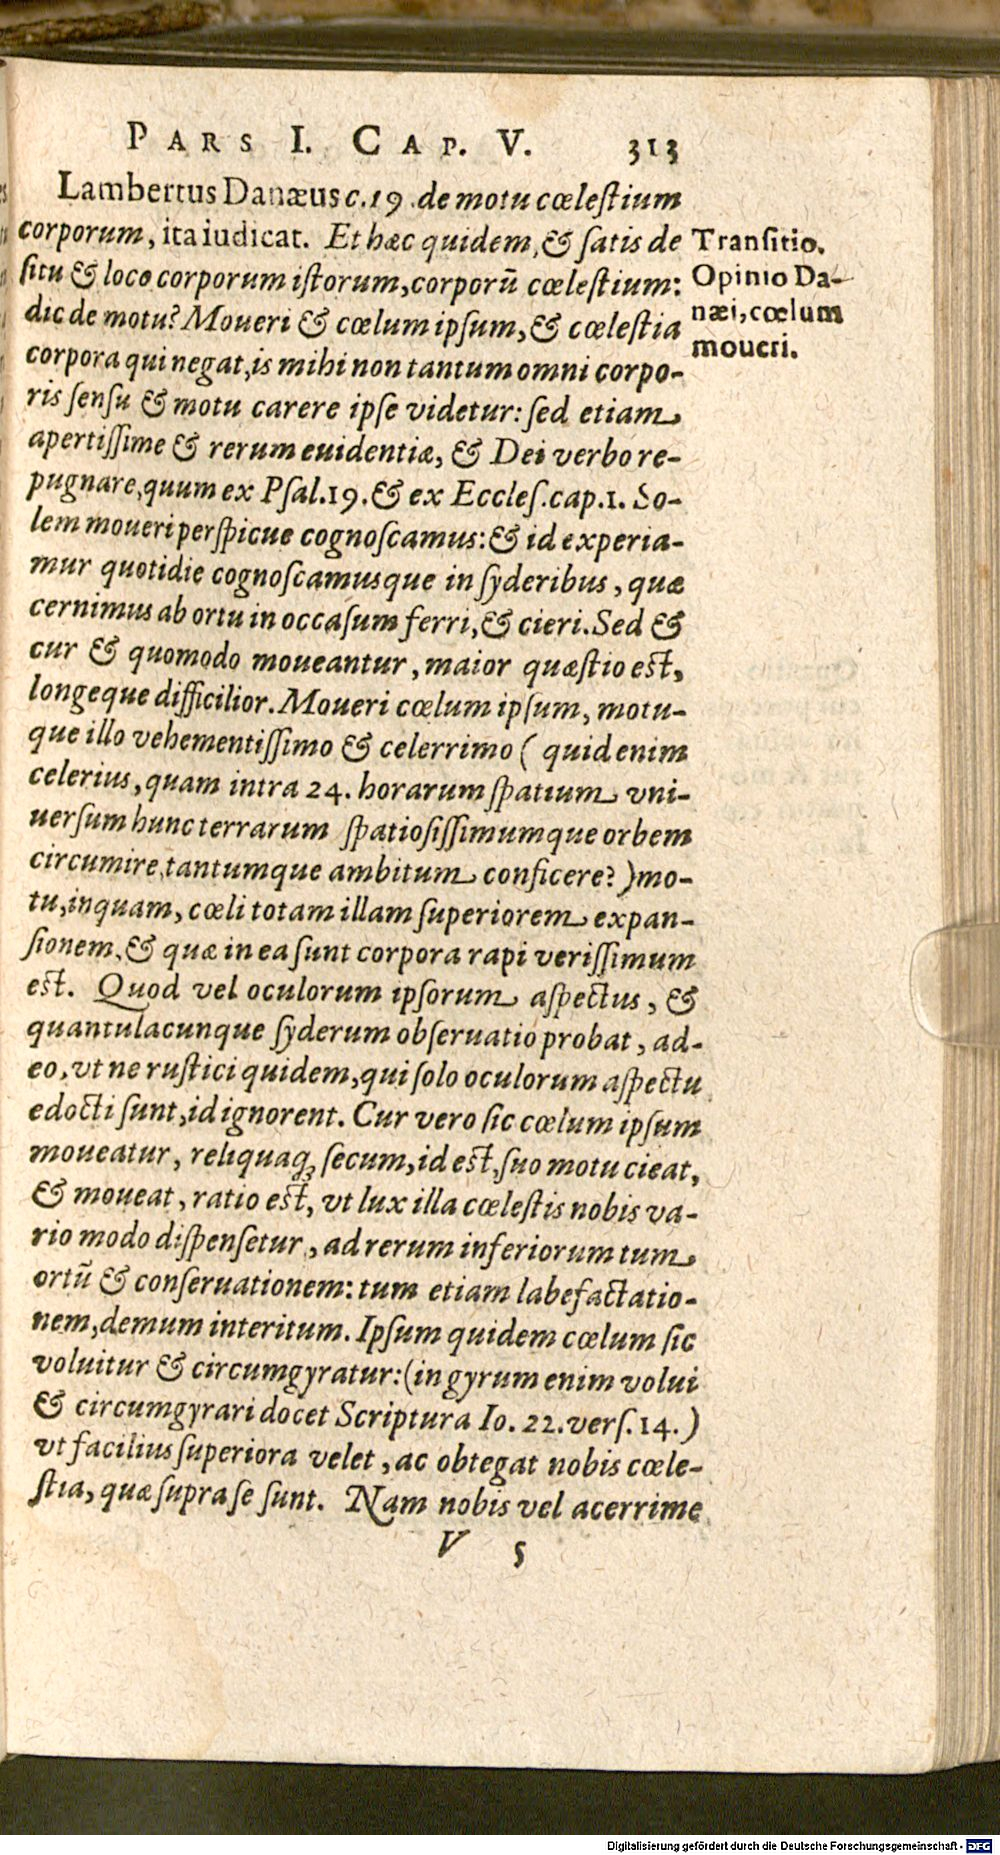 PARS I. CAP. V. 313
Lambertus Danæus c.19 .de motu cœleſtium
corporum, ita iudicat. Et hæc quidem, & ſatis de
ſitu & loco corporum iſtorum, corporū cœleſtium:
dic de motu? Moueri & cœlum ipſum, & cœleſtia
corpora qui negat, is mihi non tantum omni corpo-
ris ſenſu & motu carere ipſe videtur: ſed etiam
apertiſſime & rerum euidentiæ, & Dei verbo re-
pugnare, quum ex Pſal.19. & ex Eccleſ.cap.1. So-
lem moueri perſpicue cognoſcamus: & id experia-
mur quotidie cognoſcamusque in ſyderibus, quæ
cernimus ab ortu in occaſum ferri, & cieri. Sed &
cur & quomodo moueantur, maior quæſtio eſt,
longeque difficilior. Moueri cœlum ipſum, motu-
que illo vehementiſſimo & celerrimo ( quid enim
celerius, quam intra 24. horarum ſpatium vni-
uerſum hunc terrarum ſpatioſiſſimumque orbem
circumire, tantumque ambitum conficere? ) mo-
tu, inquam, cœli totam illam ſuperiorem expan-
ſionem, & quæ in ea ſunt corpora rapi veriſſimum
eſt. Quod vel oculorum ipſorum aſpectus, &
quantulacunque ſyderum obſeruatio probat, ad-
eo, vt ne ruſtici quidem, qui ſolo oculorum aſpectu
edocti ſunt, id ignorent. Cur vero ſic cœlum ipſum
moueatur, reliquaq; ſecum, id eſt, ſuo motu cieat,
& moueat, ratio eſt, vt lux illa cœleſtis nobis va-
rio modo diſpenſetur, ad rerum inferiorum tum
ortū & conſeruationem: tum etiam labefactatio-
nem, demum interitum. Ipſum quidem cœlum ſic
voluitur & circumgyratur: (in gyrum enim volui
& circumgyrari docet Scriptura Io. 22. verſ. 14. )
vt facilius ſuperiora velet, ac obtegat nobis cœle-
ſtia, quæ ſupra ſe ſunt. Nam nobis vel acerrime
V 5
Tranſitio.
Opinio Da-
næi, cœlum
moueri.
Digitalisierung gefördert durch die Deutsche Forschungsgemeinschaft - DFG